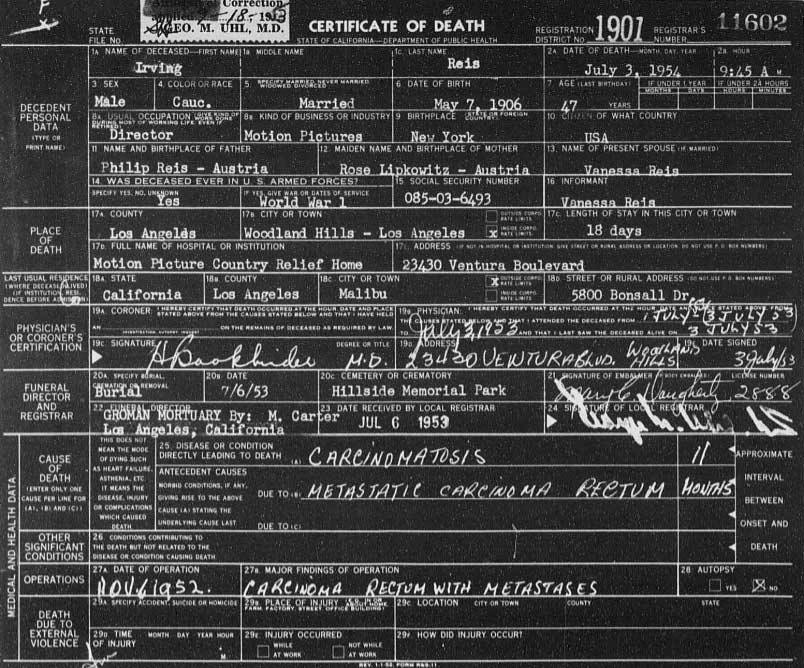 of Correction
18- 1953
GEO. M. UHL, M.D.
STATE FILE No.
CERTIFICATE OF DEATH
STATE OF CALIFORNIA—DEPARTMENT OF PUBLIC HEALTH
REGISTRATION DISTRICT No. 1901
REGISTRAR'S NUMBER 11602
DECEDENT PERSONAL DATA (TYPE OR PRINT NAME)
1A NAME OF DECEASED—FIRST NAME 1B MIDDLE NAME 1C. LAST NAME 2A DATE OF DEATH—MONTH, DAY, YEAR 2B HOUR
Irving Reis July 3, 1954 9:45 A M
3 SEX 4. COLOR OR RACE 5. SPECIFY MARRIED, NEVER MARRIED, WIDOWED DIVORCED 6 DATE OF BIRTH 7 AGE (LAST BIRTHDAY) IF UNDER 1 YEAR MONTHS DAYS IF UNDER 24 HOURS HOURS MINUTES
Male Cauc. Married May 7, 1906 47 YEARS
8A USUAL OCCUPATION (GIVE KIND OF WORK DONE DURING MOST OF WORKING LIFE, EVEN IF RETIRED) 8B KIND OF BUSINESS OR INDUSTRY 9 BIRTHPLACE (STATE OR FOREIGN COUNTRY) 10 CITIZEN OF WHAT COUNTRY
Director Motion Pictures New York USA
11 NAME AND BIRTHPLACE OF FATHER 12 MAIDEN NAME AND BIRTHPLACE OF MOTHER 13. NAME OF PRESENT SPOUSE (IF MARRIED)
Philip Reis - Austria Rose Lipkowitz - Austria Vanessa Reis
14. WAS DECEASED EVER IN U. S. ARMED FORCES? 15 SOCIAL SECURITY NUMBER 16 INFORMANT
SPECIFY YES, NO, UNKNOWN IF YES, GIVE WAR OR DATES OF SERVICE
Yes World War 1 085-03-6493 Vanessa Reis
PLACE OF DEATH
17A COUNTY 17B CITY OR TOWN OUTSIDE CORPORATE LIMITS x INSIDE CORPORATE LIMITS 17C. LENGTH OF STAY IN THIS CITY OR TOWN
Los Angeles Woodland Hills - Los Angeles 18 days
17D. FULL NAME OF HOSPITAL OR INSTITUTION 17E. ADDRESS (IF NOT IN HOSPITAL OR INSTITUTION GIVE STREET OR RURAL ADDRESS OR LOCATION. DO NOT USE P. O. BOX NUMBERS)
Motion Picture Country Relief Home 23430 Ventura Boulevard
LAST USUAL RESIDENCE (WHERE DECEASED LIVED) (IF INSTITUTION, RESIDENCE BEFORE ADMISSION)
18A STATE 18B COUNTY 18C CITY OR TOWN x OUTSIDE CORPORATE LIMITS INSIDE CORPORATE LIMITS 18D STREET OR RURAL ADDRESS (DO NOT USE P.O. BOX NUMBERS)
California Los Angeles Malibu 5800 Bonsall Dr
PHYSICIAN'S OR CORONER'S CERTIFICATION
19A. CORONER: I HEREBY CERTIFY THAT DEATH OCCURRED AT THE HOUR DATE AND PLACE STATED ABOVE FROM THE CAUSES STATED BELOW AND THAT I HAVE HELD
AN ON THE REMAINS OF DECEASED AS REQUIRED BY LAW.
19B PHYSICIAN: I HEREBY CERTIFY THAT DEATH OCCURRED AT THE HOUR DATE AND PLACE STATED ABOVE FROM THE CAUSES STATED BELOW AND THAT I ATTENDED THE DECEASED FROM
July 3, 1953 AND THAT I LAST SAW THE DECEASED ALIVE ON 3 JULY 53
19C SIGNATURE DEGREE OR TITLE 19D ADDRESS 19E DATE SIGNED
H Bookbinder M.D. 23430 VENTURA BLVD. WOODLAND HILLS 3 July/53
FUNERAL DIRECTOR AND REGISTRAR
20A. SPECIFY BURIAL, CREMATION OR REMOVAL 20B DATE 20C CEMETERY OR CREMATORY 21 SIGNATURE OF EMBALMER LICENSE NUMBER
Burial 7/6/53 Hillside Memorial Park 2888
22 FUNERAL DIRECTOR 23 DATE RECEIVED BY LOCAL REGISTRAR 24 SIGNATURE OF LOCAL REGISTRAR
GROMAN MORTUARY By: M. Carter
Los Angeles, California JUL 6 1953
MEDICAL AND HEALTH DATA
CAUSE OF DEATH (ENTER ONLY ONE CAUSE PER LINE FOR (A), (B) AND (C))
THIS DOES NOT MEAN THE MODE OF DYING SUCH AS HEART FAILURE, ASTHENIA, ETC. IT MEANS THE DISEASE, INJURY OR COMPLICATIONS WHICH CAUSED DEATH.
25. DISEASE OR CONDITION DIRECTLY LEADING TO DEATH (A) CARCINOMATOSIS 11
ANTECEDENT CAUSES
MORBID CONDITIONS, IF ANY, GIVING RISE TO THE ABOVE CAUSE (A) STATING THE UNDERLYING CAUSE LAST. DUE TO (B) METASTATIC CARCINOMA RECTUM MONTHS
DUE TO (C)
APPROXIMATE INTERVAL BETWEEN ONSET AND DEATH
OTHER SIGNIFICANT CONDITIONS
26 CONDITIONS CONTRIBUTING TO THE DEATH BUT NOT RELATED TO THE DISEASE OR CONDITION CAUSING DEATH
OPERATIONS
27A DATE OF OPERATION 27B. MAJOR FINDINGS OF OPERATION 28 AUTOPSY
NOV 6 1952. CARCINOMA RECTUM WITH METASTASES YES X NO
DEATH DUE TO EXTERNAL VIOLENCE
29A SPECIFY ACCIDENT, SUICIDE OR HOMICIDE 29B PLACE OF INJURY 29C LOCATION CITY OR TOWN COUNTY STATE
FARM, FACTORY, STREET, OFFICE BUILDING)
29D TIME OF INJURY MONTH DAY YEAR HOUR M. 29E INJURY OCCURRED WHILE AT WORK NOT WHILE AT WORK 29F HOW DID INJURY OCCUR?
REV. 1-1-52. FORM R&S-11